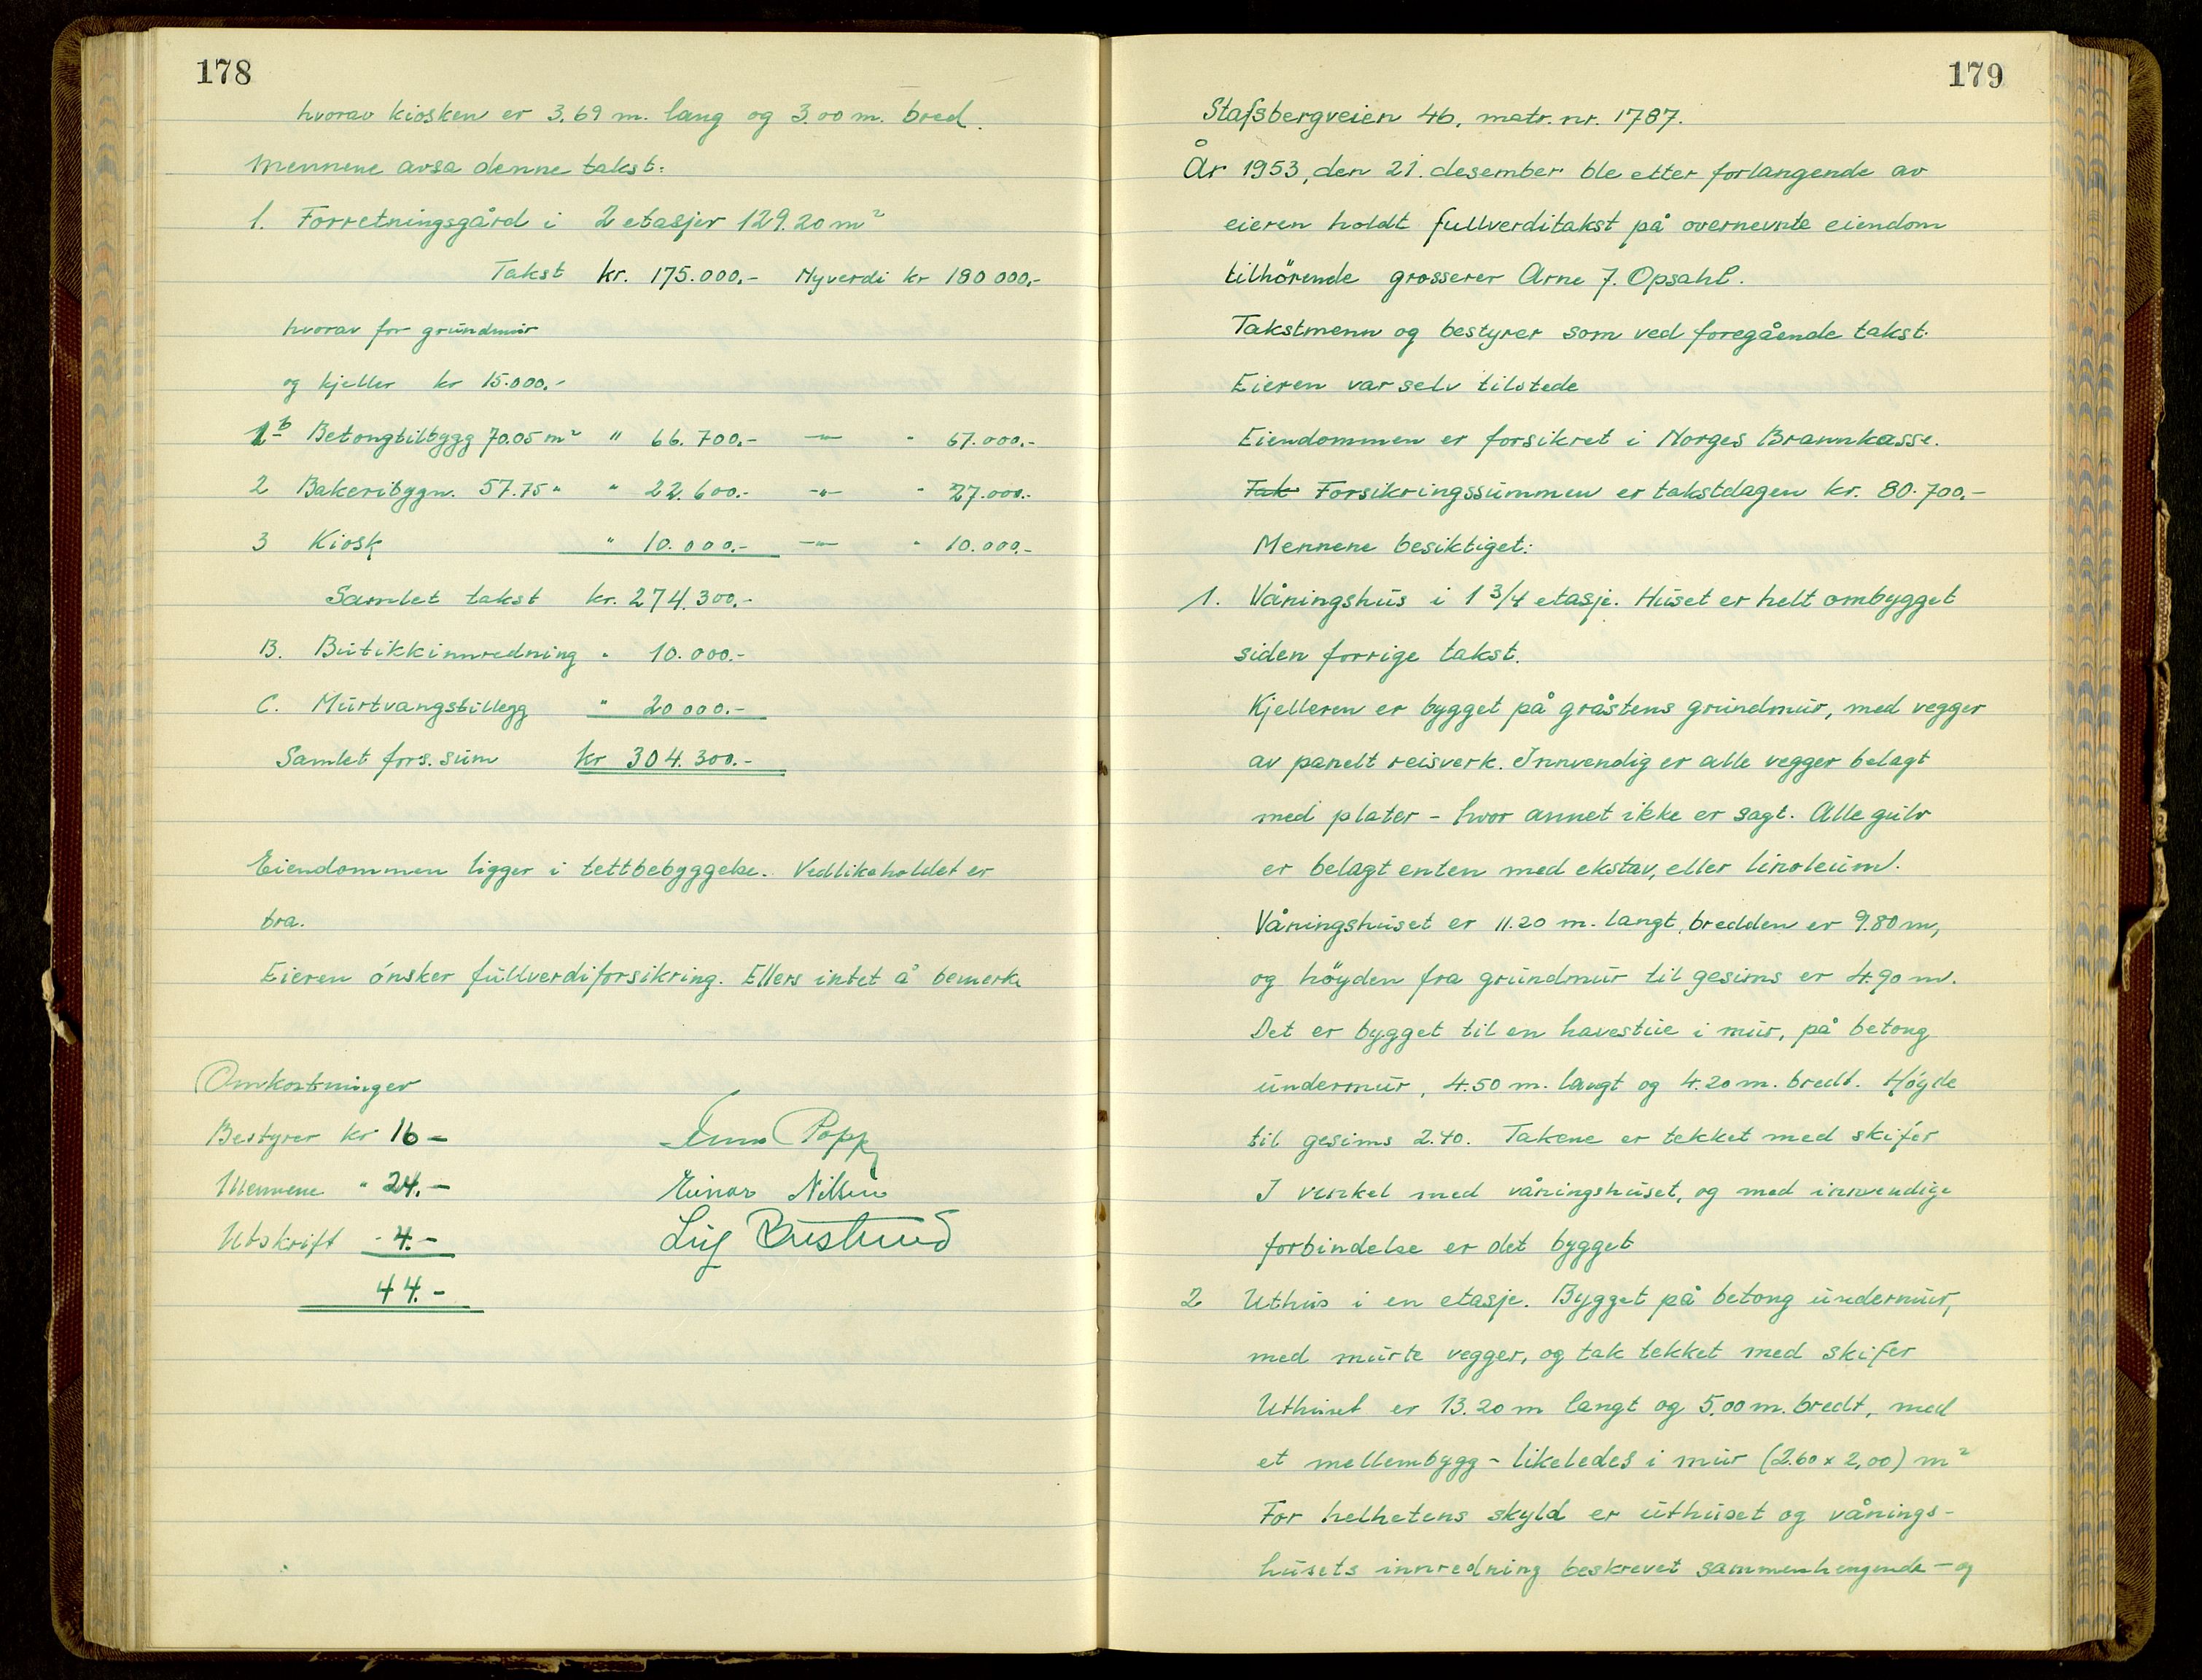 178
hvorav kiosken er 3.69 m. lang og 3.00 m. bred.
Mennene avsa denne takst:
1. Forretningsgård i 2 etasjer 129.20 m²
Takst kr. 175.000,- Nyverdi kr 180 000,-
hvorav for grundmur
og kjeller kr 15.000,-
1b Betongtilbygg 70.05 m² " 66.700,- -"- " 67.000,-
2 Bakeribygn. 57.75 " " 22.600.- -"- " 27.000.-
3 Kiosk " 10.000.- -"- " 10.000,-
Samlet takst kr. 274.300,-
B. Butikkinnredning " 10.000.-
C. Murtvangstillegg " 20 000.-
Samlet fors. sum kr 304.300.-
Eiendommen ligger i tettbebyggelse. Vedlikeholdet er
bra.
Eieren ønsker fullverdiforsikring. Ellers intet å bemerke
Omkostninger
Bestyrer kr 16 -
Mennene " 24.-
Utskrift - 4.-
44.-
Popp
Einar Nilsen
179
Stafsbergveien 46, matr. nr. 1787.
År 1953, den 21. desember ble etter forlangende av
eieren holdt fullverditakst på overnevnte eiendom
tilhörende grosserer Arne J. Opsahl.
Takstmenn og bestyrer som ved foregående takst.
Eieren var selv tilstede
Eiendommen er forsikret i Norges Brannkasse.
Tak Forsikringssummen er takstdagen kr. 80.700,-
Mennene besiktiget:
1. Våningshus i 1 3/4 etasje. Huset er helt ombygget
siden forrige takst.
Kjelleren er bygget på gråstens grundmur, med vegger
av panelt reisverk. Innvendig er alle vegger belagt
med plater - hvor annet ikke er sagt. Alle gulv
er belagt enten med ekstav, eller linoleum.
Våningshuset er 11.20 m. langt, bredden er 9.80 m,
og höyden fra grundmur til gesims er 4.90 m.
Det er bygget til en havestue i mur, på betong
undermur, 4.50 m. langt og 4.20 m. bredt. Høyde
til gesims 2.40. Takene er tekket med skifer
I vinkel med våningshuset, og med innvendige
forbindelse er det bygget
2 Uthus i en etasje. Bygget på betong undermur,
med murte vegger, og tak tekket med skifer
Uthuset er 13.20 m langt og 5.00 m. bredt, med
et mellembygg - likeledes i mur (2.60 x 2,00) m²
For helhetens skyld er uthuset og vånings-
husets innredning beskrevet sammenhengende - og